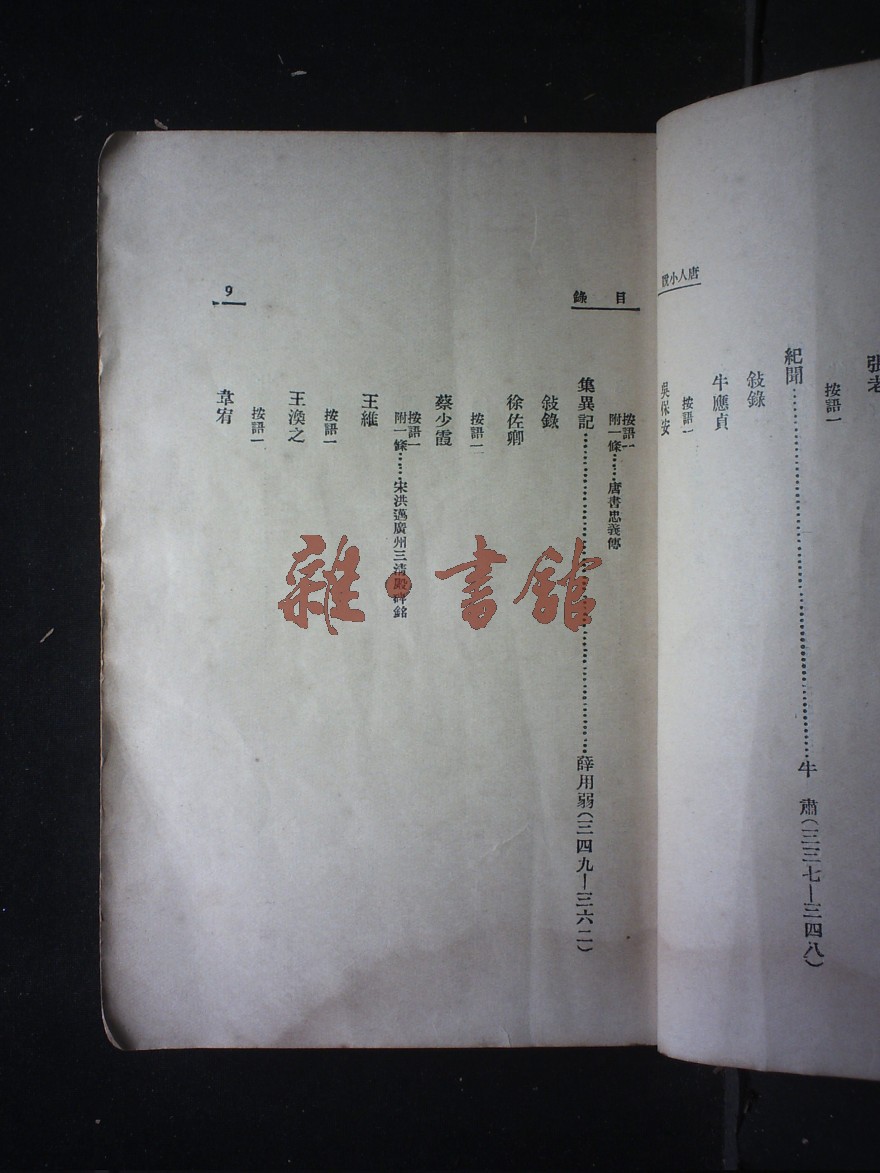 唐人小說
張老
按語一
紀聞……牛　肅(三三七—三四八)
敍錄
牛應貞
按語一
吳保安
目　錄
按語一
附一條……唐書忠義傳
集異記……薛用弱(三四九—三六二)
敍錄
徐佐卿
按語二
蔡少霞
按語一
附一條……宋洪邁廣州三清殿碑銘
王維
按語一
王渙之
按語一
韋宥
9
雜·書舘